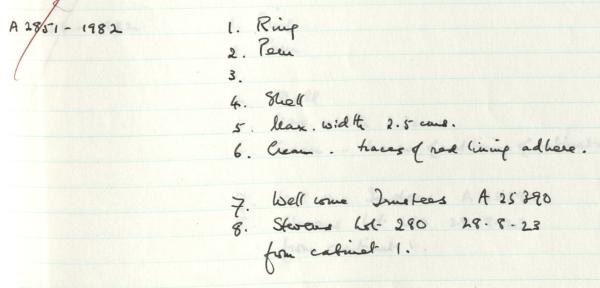 A 2851 - 1982
1. Ring
2. Peru
3.
4. Shell
5. Max. width 2.5 cms.
6. Cream. traces of red lining adhere.
7. Wellcome Trustees A 25390
8. Stevens Lot 280 28-8-23
from cabinet 1.